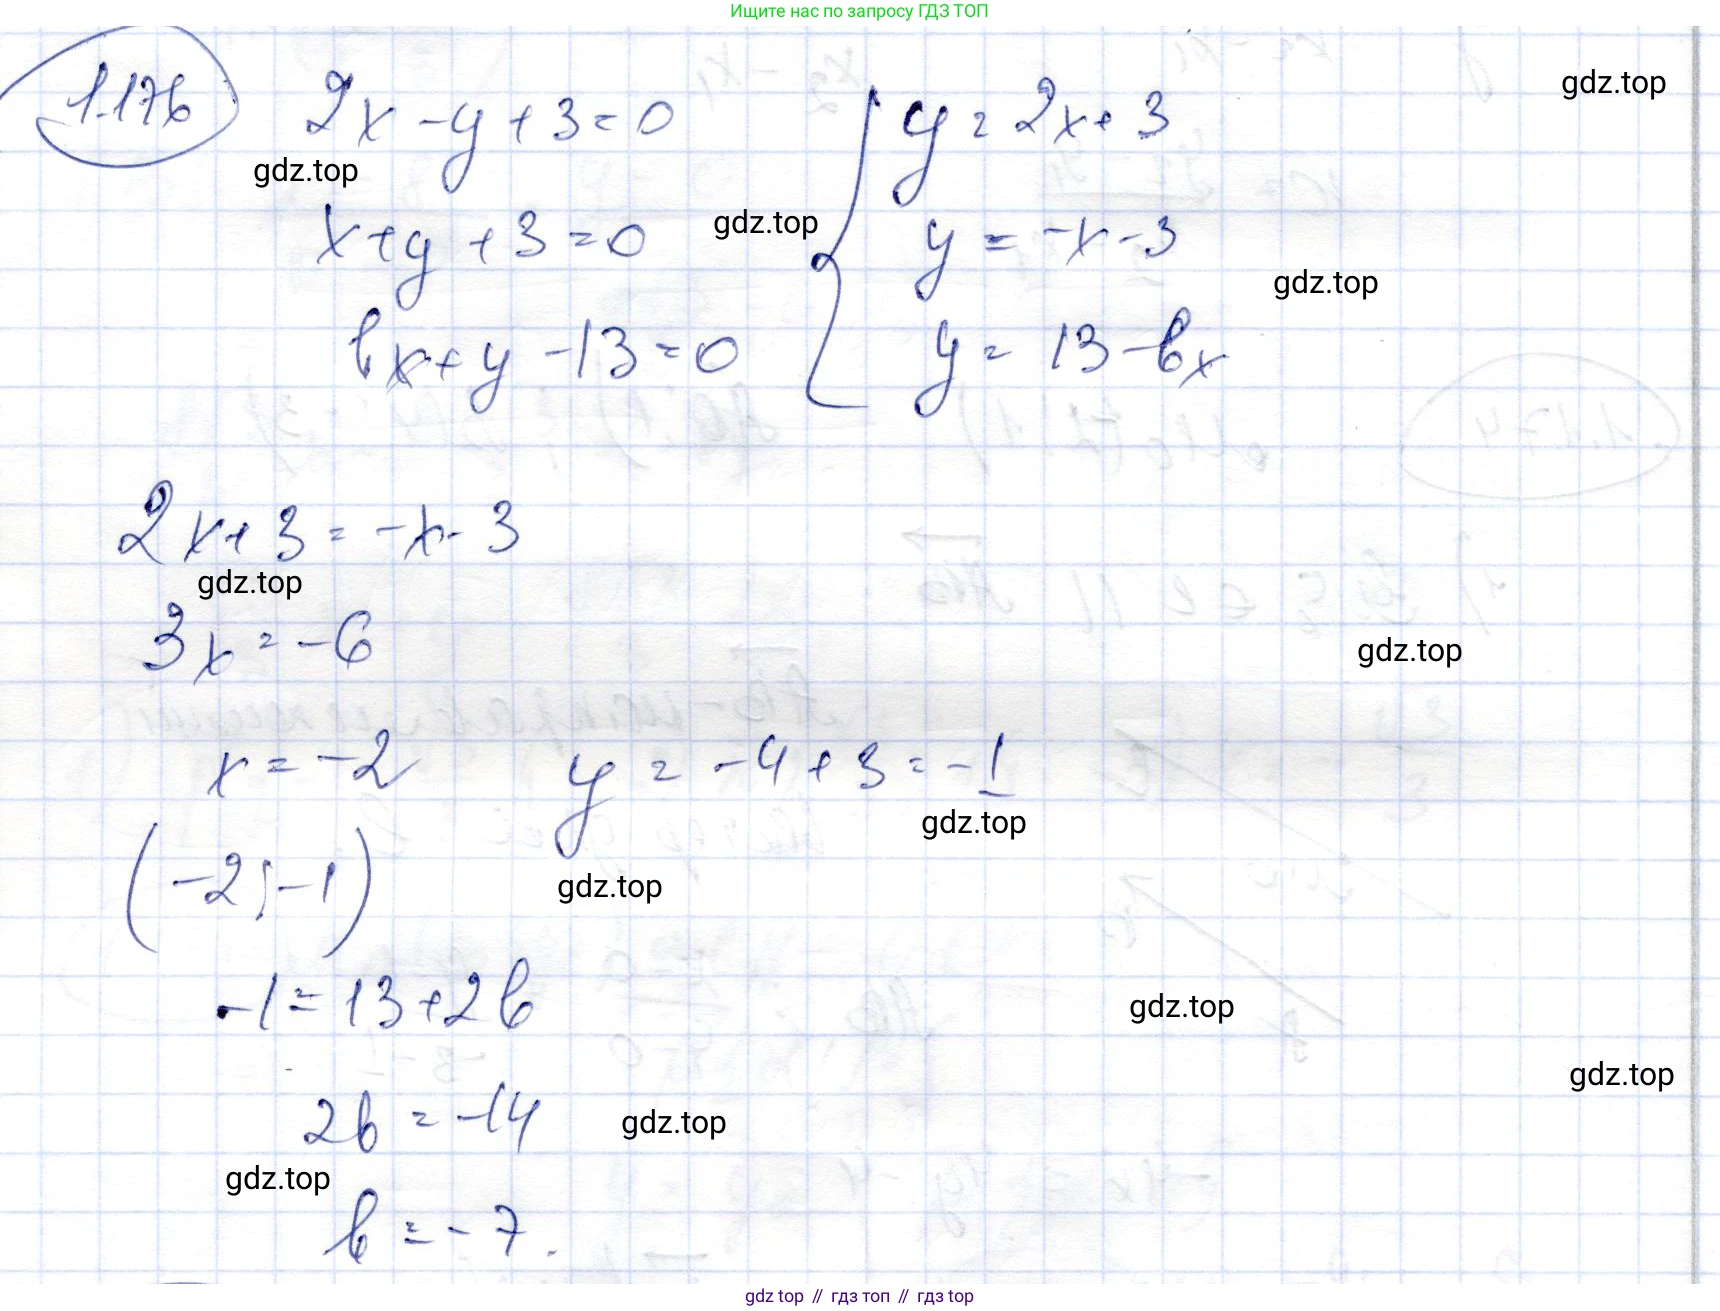 Ищите нас по запросу ГДЗ ТОП
1.176
2x - y + 3 = 0
x + y + 3 = 0
bx + y - 13 = 0
{ y = 2x + 3
y = -x - 3
y = 13 - bx
gdz.top
gdz.top
gdz.top
gdz.top
2x + 3 = -x - 3
gdz.top
3x = -6
gdz.top
x = -2 y = -4 + 3 = -1
gdz.top
(-2; -1)
gdz.top
-1 = 13 + 2b
gdz.top
gdz.top
2b = -14
gdz.top
gdz.top
b = -7.
gdz top // гдз топ // гдз top